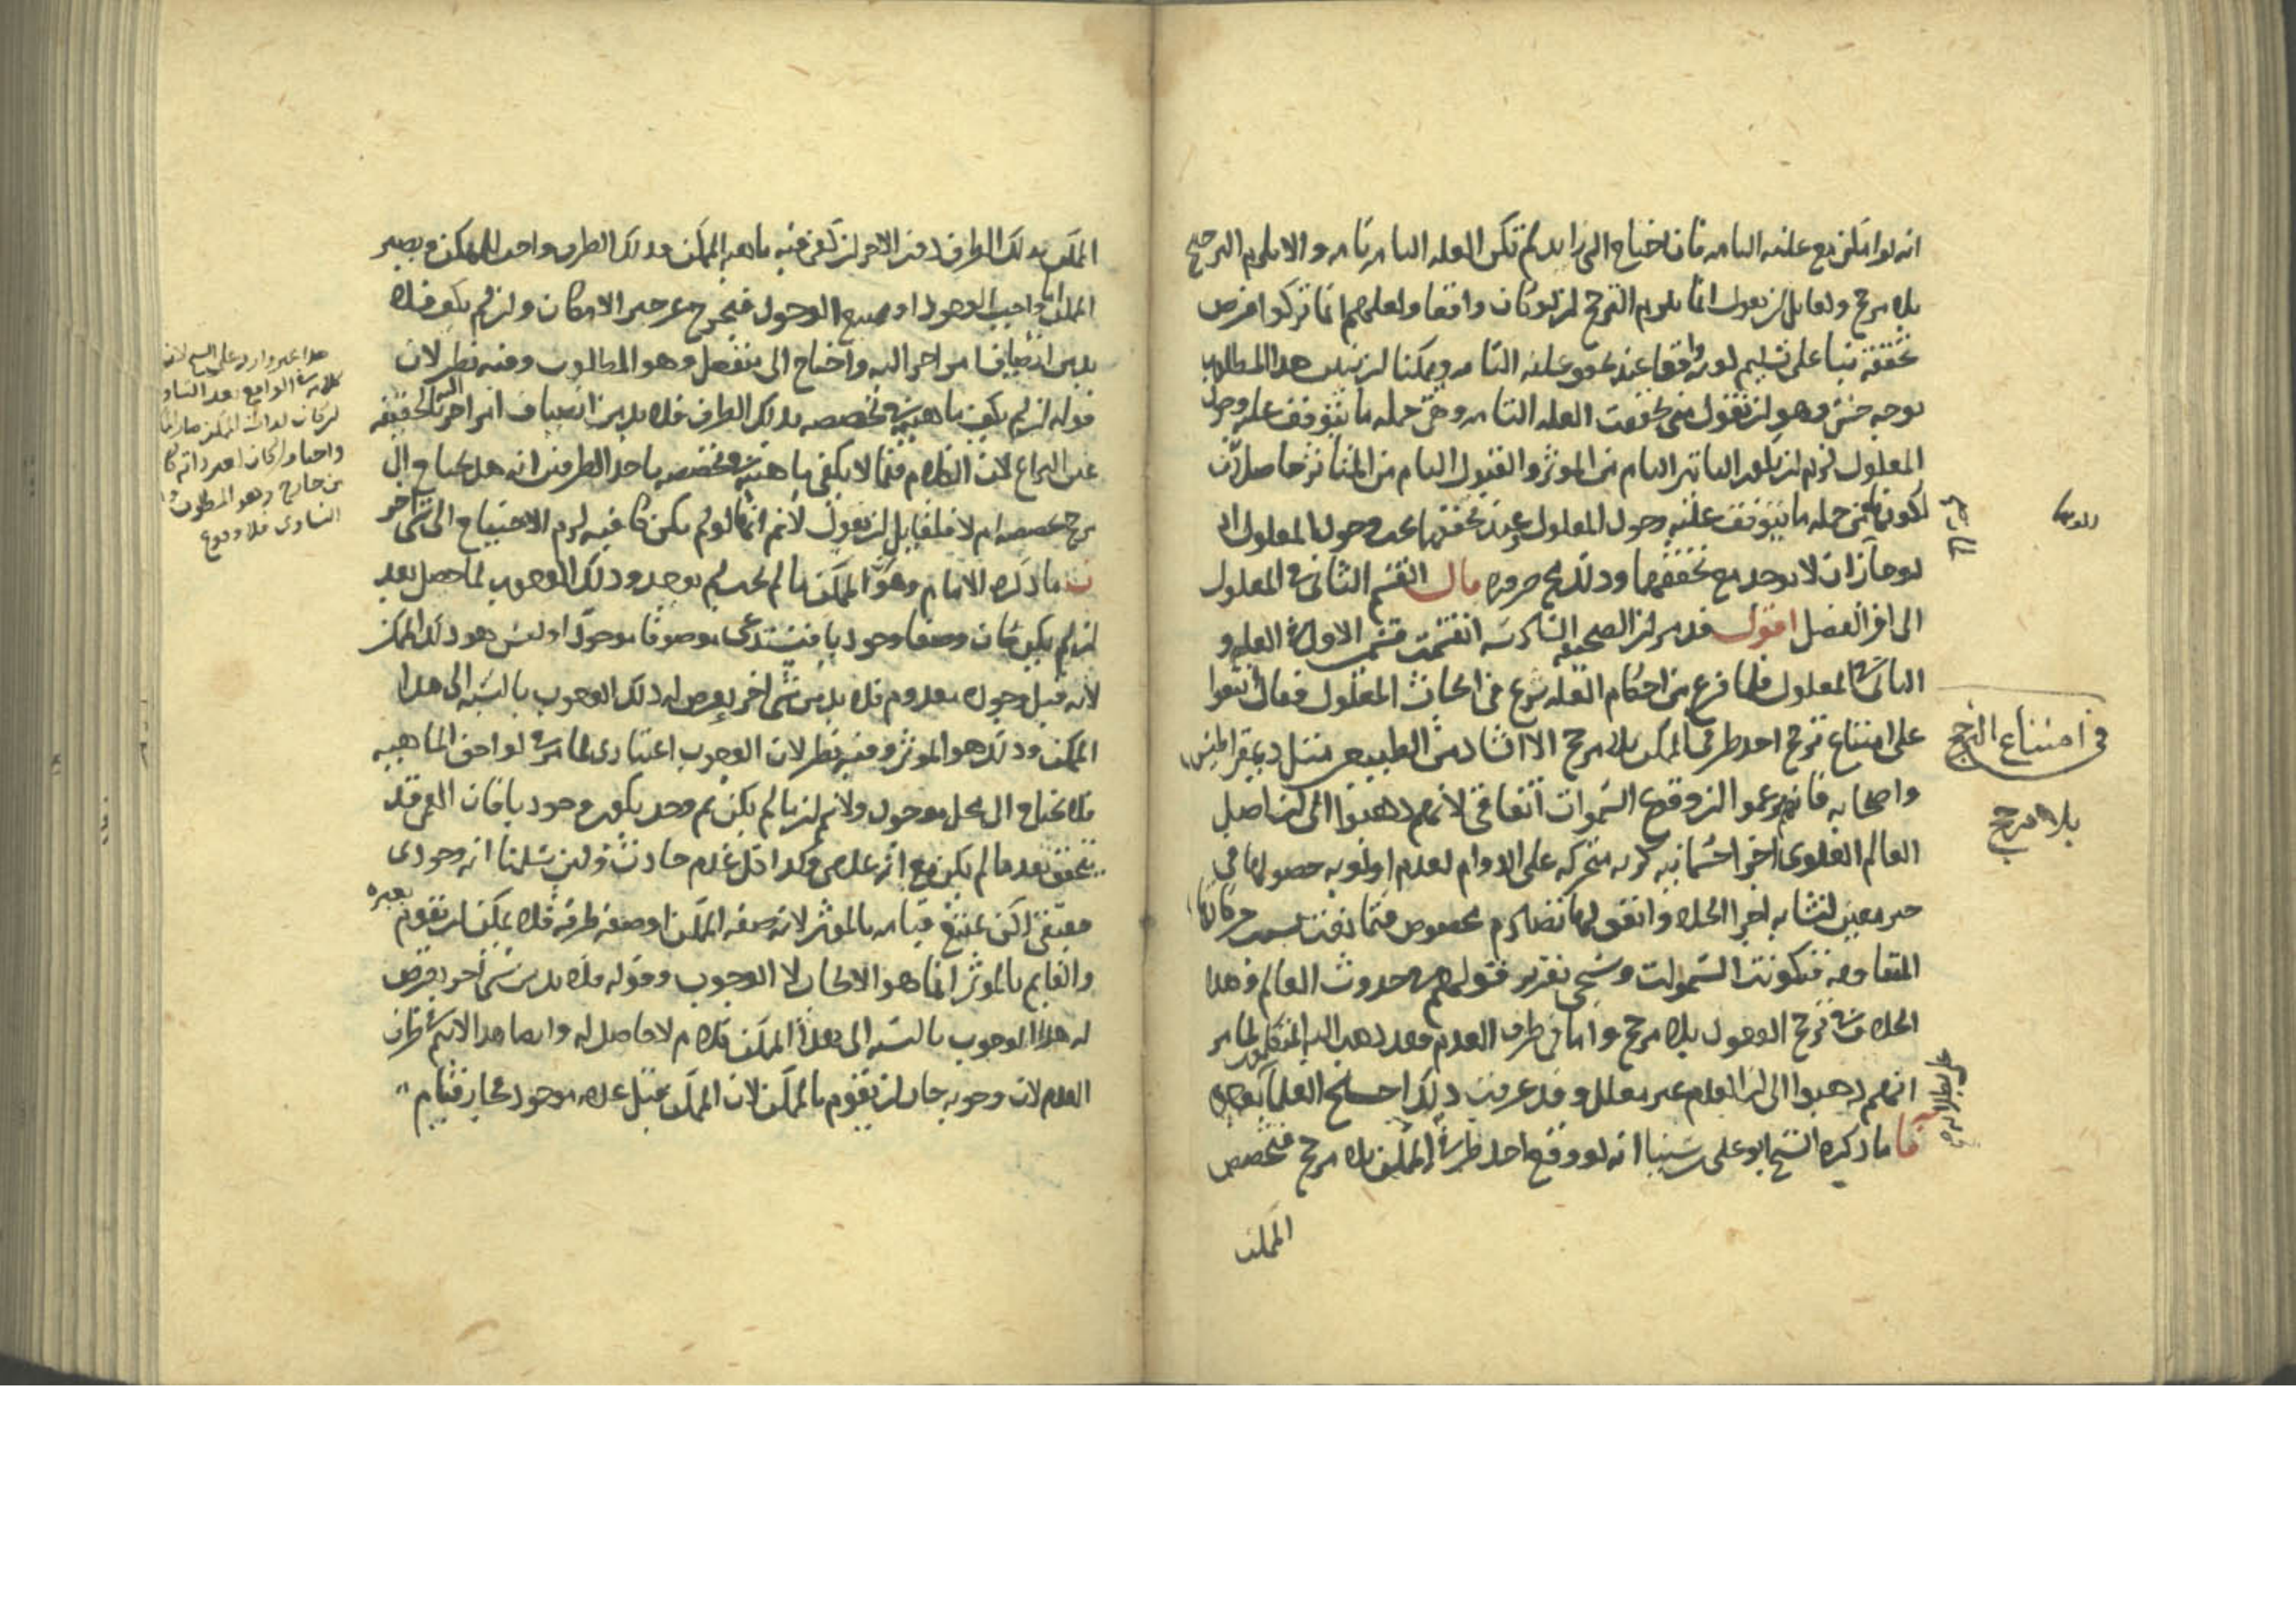 انه لو امكن مع علته التامه فان احتاج الى زايد لم تكن العله التامه تامه والا يلزم الترجيح
بلا مرجح ولقايل ان يقول انما يلزم الترجح ان لو كان واقعا ولعلهم انما تركوا فرض
تحققه بنا على تسليم لونه واقعا عند تحقق علته التامه ويمكننا ان نبين هذا المطلوب
بوجه حسن وهو ان نقول متى تحققت العله التامه وهى جمله ما يتوقف عليه وجود
المعلول لزم ان يكون التاثير التام من الموثر والقبول التام من المتاثر حاصلان
لكونهما من جمله ما يتوقف عليه وجود المعلول وعند تحققهما يجب وجود المعلول اذ
لو جاز ان لا يوجد مع تحققهما وذلك مح ضروره قال القسم الثانى فى المعلول
الى اخر الفصل اقول قد مر ان الصحيفه السادسه انقسمت قسمين الاول فى العله و
الثانى فى المعلول فلما فرغ من احكام العله شرع فى ابحاث المعلول فقال اتفقوا
على امتناع ترجح احد طرفى الممكن بلا مرجح الا اشاذ من الطبيعى مثل ديمقراطيس
واصحابه فانهم زعموا ان وقوع السموات اتفاقى لانهم ذهبوا الى ان اصل
العالم العلوى اجزا جسمانيه كريه متحركه على الدوام لعدم اولويه حصولها فى
حيز معين لتشابه اجزا الخلا واتفق لها تصادم مخصوص فتمانعت بسبب حركاتها
المتقاومه فتكونت السموات وسيجى تقرير قولهم فى حدوث العالم وهذا
الخلاف فى ترجح الوجود بلا مرجح واما فى طرف العدم فقد ذهب اليه المتكلمون لما مر
انهم ذهبوا الى ان العدم غير معلل وقد عرفت ذلك احتج العلما بوجوه
ا ما ذكره الشيخ ابو على سينا انه لو وقع احد طرفى الممكن بلا مرجح فتخصص
الممكن
فى امتناع الترجح
بلا مرجح
الممكن بذلك الطرف دون الاخر ان كفى فيه ماهيه الممكن فذلك الطرف واجب للممكن ويصير
الممكن اما واجب الوجود او ممتنع الوجود فيخرج عن حيز الامكان وان لم يكف فلا
بد من انضياف امر اخر اليه واحتاج الى منفصل وهو المطلوب وفيه نظر لان
قوله ان لم يكف ماهيته فى تخصصه بذلك الطرف فلا بد من انضياف امر اخر اليه لحقيقه
عين النزاع لان الكلام فيما لا يكفى ماهيته فى تخصصه باحد الطرفين انه هل يحتاج الى
مرجح يخصصه ام لا فلقايل ان يقول لا نم انها لو لم يكن كافيه لزم الاحتياج الى شى اخر
ب ما ذكره الامام وهو ان الممكن ما لم يجب لم يوجد وذلك الوجوب لما حصل بعد
ان لم يكن كان وصفا وجوديا فيستدعى موصوفا موجودا وليس هو ذلك الممكن
لانه قبل وجوده معدوم فلا بد من شى اخر يعرض له ذلك الوجوب بالنسبه الى هذا
الممكن وذلك هو الموثر وفيه نظر لان الوجوب اعتبارى لما مر فى لواحق الماهيه
فلا يحتاج الى محل موجود ولا نم ان ما لم يكن ثم وجد يكون وجوديا فان العمى قد
يتحقق بعد ما لم يكن مع انه عدمى وكذا كل عدم حادث ولين سلمنا انه وجودى
حقيقى لكن يمتنع قيامه بالموثر لانه صفه الممكن او صفه طرفه فلا يمكن ان يقوم بغيره
والقايم بالموثر انما هو الايجاب لا الوجوب وقوله فلا بد من شى اخر يعرض
له هذا الوجوب بالنسبه الى هذا الممكن كلام لا حاصل له وايضا هذا لا يتم فى طرف
العدم لان وجوبه جاز ان يقوم بالممكن لان الممكن قبل عدمه موجود فجاز قيام
هذا غير وارد على الشيخ لان
من خارج وهو المطلوب
التساوى فلا وقوع